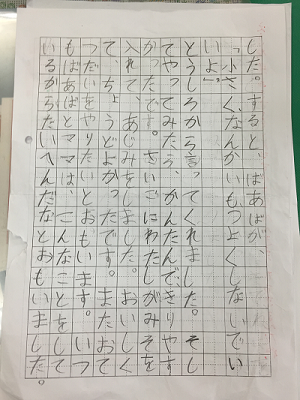 した。すると、ばあばが、
「小さく、なんかいも、つよくしないでい
いよ」
とうしろから言ってくれました。そし
てやってみたら、かんたんで、きりやす
かったです。さいごにわたしがみそを
入れて、あじみをしました。おいしく
て、ちょうどよかった。またおて
つだいをやりたいとおもいます。いつ
もばあばとママは、こんなことをして
いるからたいへんだなとおもいました。